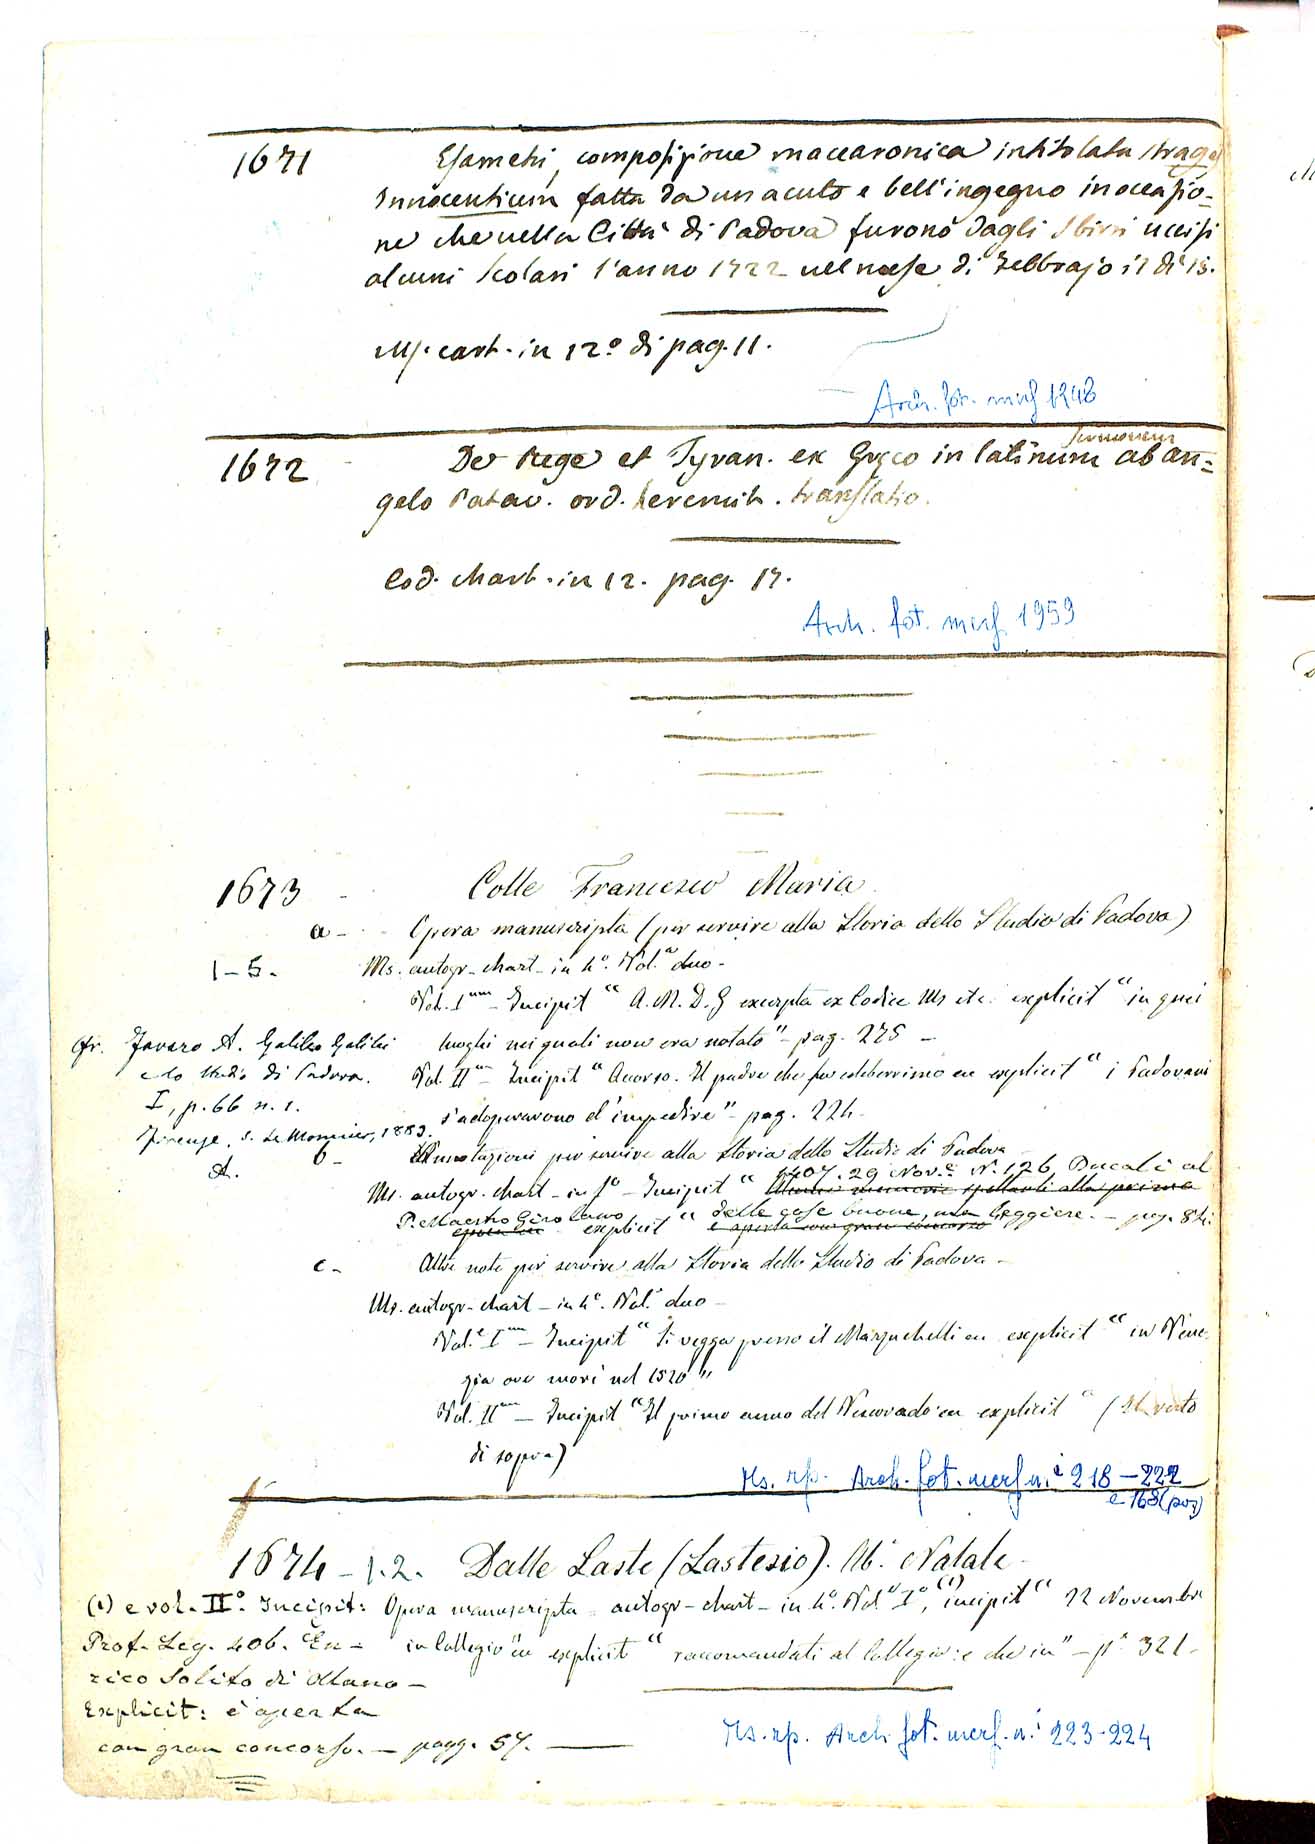 1671 Esametri, composizione maccaronica intitolata strages
Innocentium fatta da un acuto e bell'ingegno in occasio-
ne che nella Città di Padova furono dagli Sbirri uccisi
alcuni Scolari l'anno 1722 nel mese di Febbrajo il dì 15.
Ms. cart. in 12º di pag. 11.
Arch. fot. misc 1248
1672 De Rege et Tyran. ex Gręco in latinum sermonem ab an=
gelo Patav. ord. heremit. translatio.
Cod. chart. in 12. pag. 17.
Arch. fot. misc 1959
1673 Colle Francesco Maria
a - Opera manuscripta (per servire alla Storia dello Studio di Padova)
1-5. Ms. autogr. chart. in 4º. Vol.ª duo -
Vol. Ium - Incipit " A. M. D. G excerpta ex Codice Ms etc. explicit " in quei
luoghi nei quali non era notato" - pag. 275 -
Cfr. Favaro A. Galileo Galilei
e lo studio di Padova.
I, p. 66 n. 1.
Firenze, S. Le Monnier, 1883.
Vol. IIum - Incipit " Accorso. Il padre che fu celeberrimo ec explicit " i Padovani
s'adoperarono d'impedire" - pag. 224 -
b - Annotazioni per servire alla Storia dello Studio di Padova
A. Ms. autogr. chart. in fº - Incipit " 1407. 29 Nov.e N. 126 Ducali al
P. Maestro Girolamo explicit " delle cose buone, ma leggiere. - pag. 84.
c - Altre note per servire alla Storia dello Studio di Padova -
Ms. autogr. chart - in 4º. Vol.ª duo -
Vol. Ium - Incipit " Si vegga presso il Mazzuchelli ec explicit " in Vene-
zia ove morì nel 1520 "
Vol. IIum - Incipit "Il primo anno del Vescovado ec explicit " (Il resto
di sopra)
Ms. rp. Arch. fot. mscf n.i 218-222
e 168 (pos)
1674 - 1.2. Dalle Laste (Lastesio). Ab. Natale -
Opera manuscripta - autogr - chart - in 4º. Vol. Iº, (1) incipit " 22 Novembre
in Collegio" ec explicit " raccomandati al Collegio: e che in" - pª 321 -
(1) e vol. IIº. Incipit:
Prof. Leg. 406. En-
rico Solito di Alano -
Explicit: è aperta
con gran concorso. - pagg. 57.
Ms. rp. Arch. fot. mscf. n.i 223-224